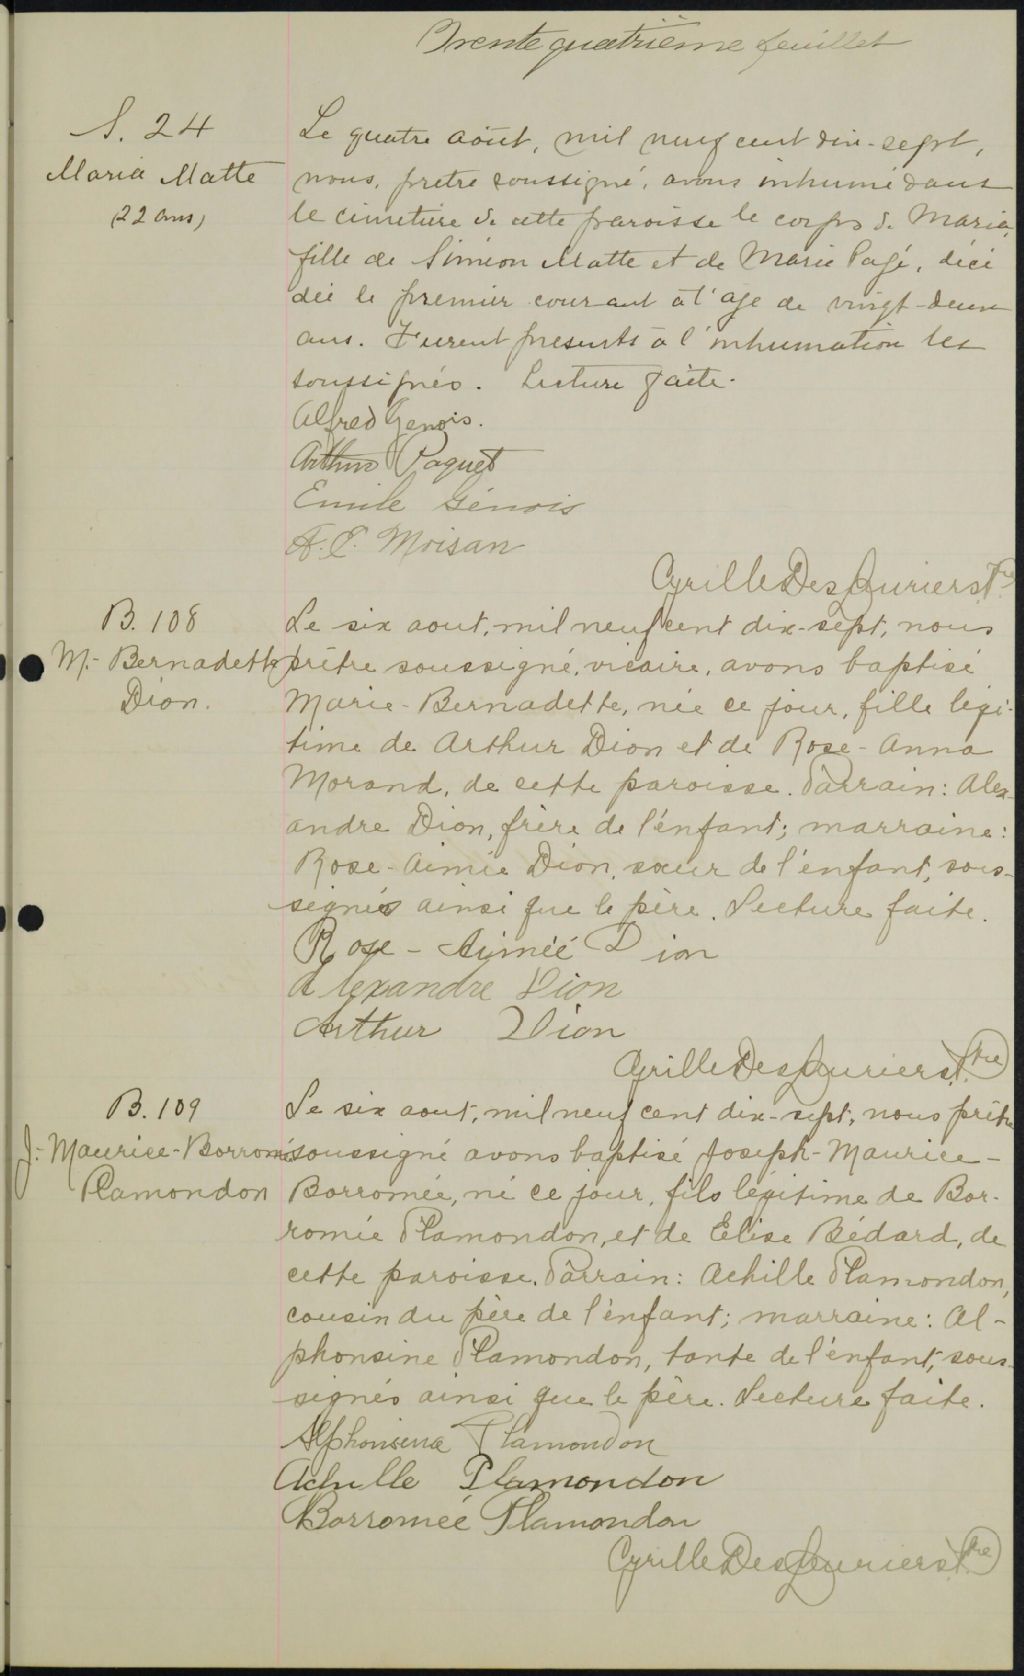 Trente quatrième feuillet
S. 24
Maria Matte
(22 ans)
Le quatre août, mil neuf cent dix-sept,
nous, prêtre soussigné, avons inhumé dans
le cimetière de cette paroisse le corps de Maria,
fille de Siméon Matte et de Marie Pagé, décé
dée le premier courant à l'âge de vingt-deux
ans. Furent présents à l'inhumation les
soussignés. Lecture faite.
Alfred Genois.
Arthur Paquet
Emile Génois
A. E. Moisan
Cyrille DesLauriers Ptre
B. 108
M.- Bernadette
Dion.
Le six aout, mil neuf cent dix-sept, nous
prêtre soussigné, vicaire, avons baptisé
Marie-Bernadette, née ce jour, fille légi-
time de Arthur Dion et de Rose-Anna
Morand, de cette paroisse. Parrain: Alex-
andre Dion, frère de l'enfant; marraine:
Rose-Aimée Dion, sœur de l'enfant, sous-
signés ainsi que le père. Lecture faite.
Rose-Aimée Dion
Alexandre Dion
Arthur Dion
Cyrille DesLauriers, Ptre
B. 109
J.- Maurice-Borromée
Plamondon
Le six aout, mil neuf cent dix-sept, nous prêtre
soussigné avons baptisé Joseph-Maurice-
Borromée, né ce jour, fils légitime de Bor-
romée Plamondon, et de Elise Bédard, de
cette paroisse. Parrain: Achille Plamondon,
cousin du père de l'enfant; marraine: Al-
phonsine Plamondon, tante de l'enfant, sous-
signés ainsi que le père. Lecture faite.
Alphonsine Plamondon
Achille Plamondon
Borromée Plamondon
Cyrille DesLauriers, Ptre